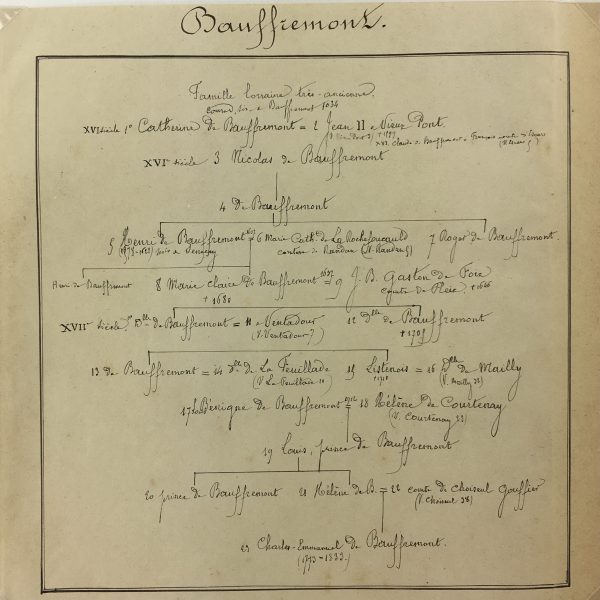 Bauffremont.
Famille lorraine très-ancienne.
sire de Bauffremont 1034
XVI siècle 1º Catherine de Bauffremont = 2 Jean II de Vieux Pont.
XVIe siècle 3 Nicolas de Bauffremont
4 de Bauffremont
5 Henri de Bauffremont = 6 Marie Cath. de La Rochefoucauld 7 Roger de Bauffremont.
comtesse de Randan (V. Randan 5)
Henri de Bauffremont 8 Marie Claire de Bauffremont = 9 J. B. Gaston de Foix
† 1680 comte de Fleix. † 1646
XVIIe siècle Dlle de Bauffremont = 11 de Ventadour 12 Dlle de Bauffremont
(V. Ventadour 7)
13 de Bauffremont = 14 Dlle de La Feuillade 15 Listenois = 16 Dlle de Mailly
(V. La Feuillade 10) (V. Mailly 33)
17 Bénigne de Bauffremont = 18 Hélène de Courtenay
(V. Courtenay 33)
19 Louis, prince de Bauffremont
20 prince de Bauffremont 21 Hélène de B. = 22 comte de Choiseul Gouffier
(V. Choiseul 38)
23 Charles-Emmanuel de Bauffremont.
(1773-1833.)